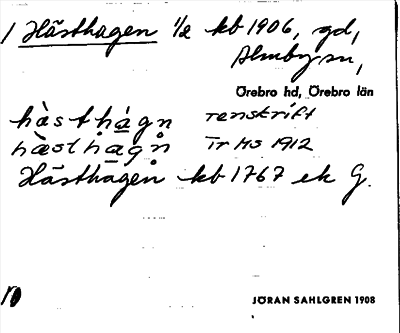 1 Hästhagen 1/2 kb 1906, gd,
Almby sn,
Örebro hd, Örebro län
hàsthágn renskrift
hàsthagn Tr Hs 1912
Hästhagen kb 1767 ek G.
JÖRAN SAHLGREN 1908